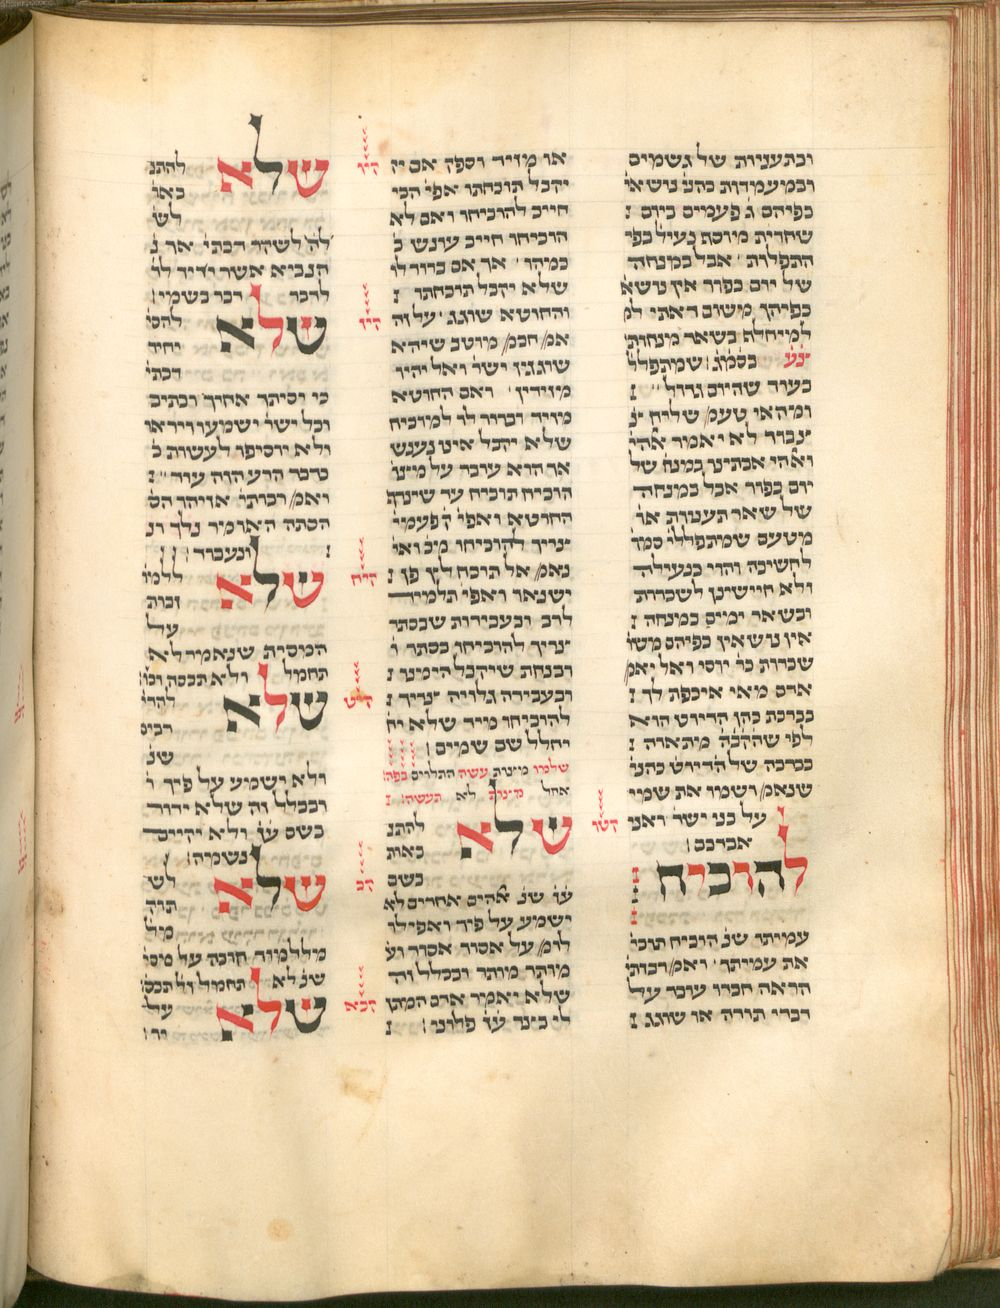 ובתעניות של גשמים
ובמעמדות כהני נושאי
כפיהם ג פעמים ביום
שחרית מוסף נעיל בפי
התפלות אבל במנחה
של יום כפור אין נושא
כפיהן משום דאתי למ
למיחלף בשאר מנחות
בסמג שמתפללי
בעוד שהיום גדול
ומהאי טעמ שליח צ
צבור לא יאמר אלהי
ואלהי אבתינו במנח של
יום כפור אבל במנחה
של שאר תעניות או
מטעם שמתפללי סמך
לחשיכה והוי כנעילה
ולא חיישינן לשכרות
ובשאר ימים במנחה
אין נושאין כפיהם משו
שכרות כר יוסי ואל יאמ
אדם מאי איכפת לך
בברכת כהן הדיוט הוא
לפי שהקבה מתאוה
בברכה של הדיוט כהני
שנאמ ושמו את שמי
על בני ישר ואני
אברכם
להוכיח
עמיתו שנ הוכיח תוכי
את עמיתך ואמ רבותי
הרואה חברו עובר על
דברי תורה או שוגג
או מזיד וספק אם יק
יקבל תוכחתו אפי הכי
חייב להוכיחו ואם לא
הוכיחו חייב עונש כ
כמהו אך אם ברור לו
שלא יקבל תוכחתו
והחוטא שוגג על זה
אמ חכמ מוטב שיהא
שוגגין ישר ואל יהיו
מזידין ואם החוטא
מזיד וברור לו למוכיח
שלא יקבל אינו נענש
אך הוא עובר על מצו
הוכיח תוכיח עד שינזף
החוטא ואפי ק פעמי
צריך להוכיחו מכ ואי
נאמ אל תוכח לץ פן
ישנאך ואפי תלמיד
לרב ובעבירות שבסתר
צריך להוכיחו בסתר ו
ובנחת שיקבל הימנו
ובעבירה גלויה צריך
להוכיחו מיד שלא יח
יחלל שם שמים
שלמו מצות עשה התלוים בפה
אחל מצות לא תעשה
הטז
שלא
להתנ
באות
בשם
עז שנ אלהים אחרים לא
ישמע על פיך ואפילו
לומ על אסור אסור ועל
מותר מותר ובכלל זה
שלא יאמר אדם המתן
לי בצד עז פלוני
היו
שלא
להתנ
באר
לש
לה לשקר דכתי אך
הנביא אשר יזיד לד
לדבר דבר בשמי
היז
שלא
להסי
יחיד
דכתי
כי יסיתך אחיך וכתיב
וכל ישר ישמעו ויראו
ולא יוסיפו לעשות כ
כדבר הרע הזה עוד
ואמ רבותי איזהו הס
הסתה האומר נלך ונ
ונעבוד
היח
שלא
ללמו
זכות
על
המסית שנאמר לא
תחמל ולא תכסה וכו
היט
שלא
להרי
רבים
שנ
ולא ישמע על פיך ו
ובכלל זה שלא ידור
בשם עז ולא יקיים
נשמיה
הכ
שלא
לש
תוק
מל
מללמוד חובה על מסי
שנ לא תחמול ול תכסה
הכא
שלא
על